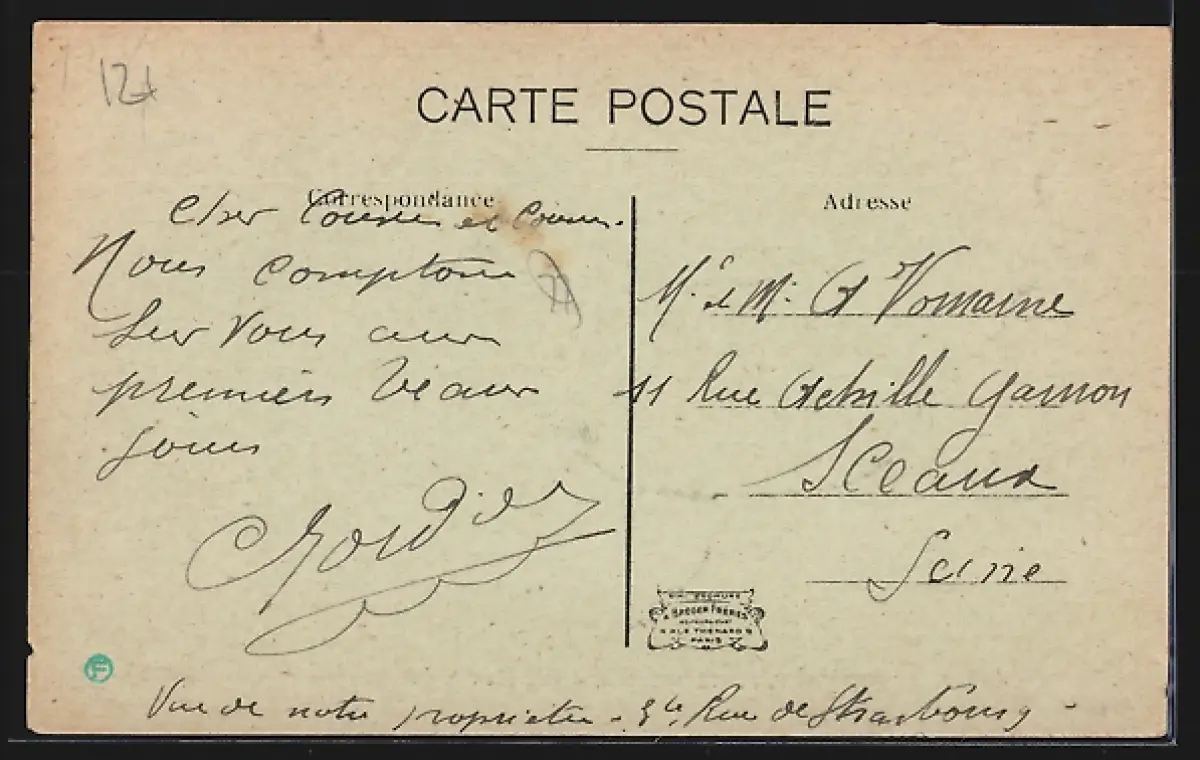 12+
CARTE POSTALE
Correspondance
Adresse
Cher Cousin et Cousine.
Nous comptons
sur vous aux
premiers beaux
jours
Mr & Mme A
11 Rue Achille Garnon
Sceaux
Seine
FRÈRES
PARIS
Vue de notre propriété - Rue de Strasbourg -